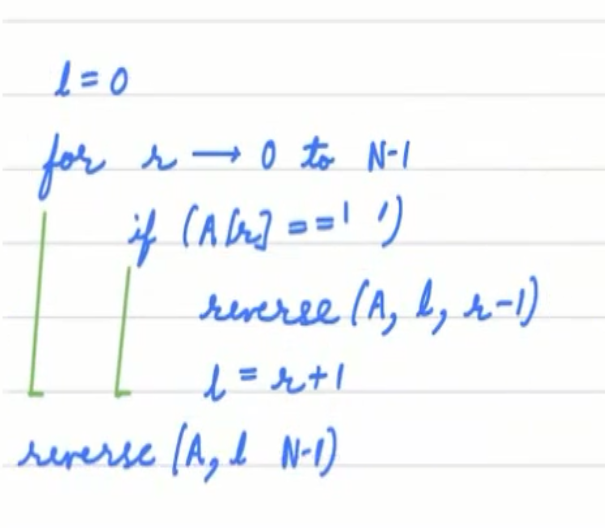 l = 0
for r → 0 to N-1
if (A[r] == ' ')
reverse (A, l, r-1)
l = r+1
reverse (A, l N-1)